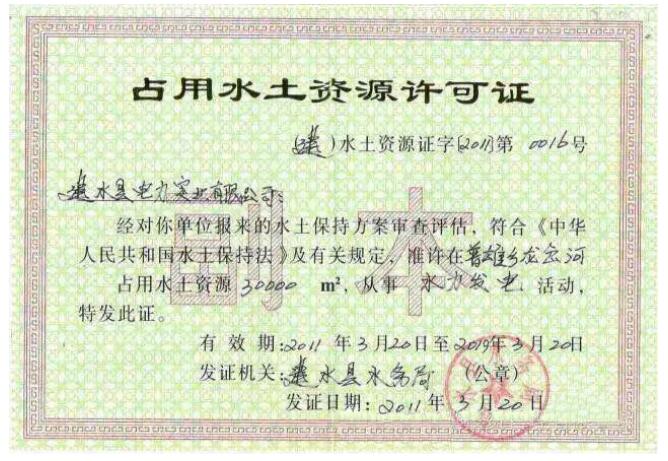 占用水土资源许可证
(建)水土资源证字[2011]第 0016号
建水县电力实业有限公司:
副本
经对你单位报来的水土保持方案审查评估,符合《中华
人民共和国水土保持法》及有关规定,准许在普雄乡龙岔河
占用水土资源 30000 m²,从事 水力发电 活动,
特发此证。
有 效 期:2011 年 3 月 20 日至 2019年 3 月 20日
发证机关:建水县水务局 (公章)
发证日期:2011 年 3 月 20 日